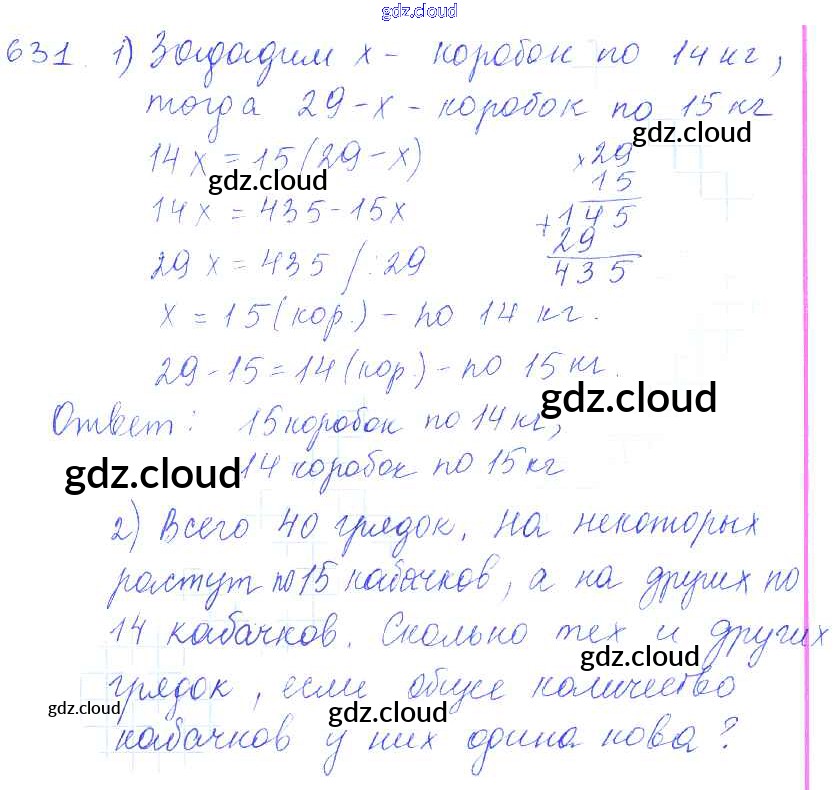 gdz.cloud
631. 1) Зададим x - коробок по 14 кг,
тогда 29-x - коробок по 15 кг
gdz.cloud
14x = 15(29-x)
gdz.cloud
14x = 435-15x
29x = 435 /:29
x = 15 (кор.) - по 14 кг.
29-15 = 14 (кор) - по 15 кг.
× 29
15
+ 145
29
435
gdz.cloud
Ответ: 15 коробок по 14 кг,
gdz.cloud
14 коробок по 15 кг
2) Всего 40 грядок. На некоторых
растут по 15 кабачков, а на других по
14 кабачков. Сколько тех и других
gdz.cloud
грядок, если общее количество
gdz.cloud
gdz.cloud
кабачков у них одинакова?